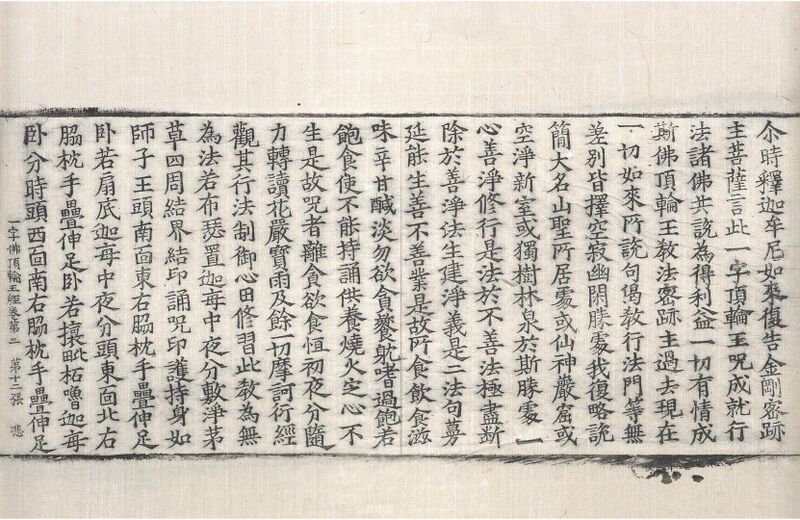 尒時釋迦牟尼如來復告金剛密跡
主菩薩言此一字頂輪王呪成就行
法諸佛共說為得利益一切有情成
斯佛頂輪王教法密跡主過去現在
一切如來所說句偈教行法門等無
差別皆擇空寂幽閑勝處我復略說
簡大名山聖所居處或仙神巖窟或
空淨新室或獨樹林泉於斯勝處一
心善淨修行是法於不善法極盡斷
除於善淨法生建淨義是二法句蔓
延能生善不善業是故所食飲食滋
味辛甘醎淡勿欲貪饗躭嗜過飽若
飽食使不能持誦供養燒火定心不
生是故呪者離食欲食恒初夜分隨
力轉讀花嚴寶雨及餘一切摩訶衍經
觀其行法制御心田修習此教為無
為法若布瑟置迦每中夜分敷淨茅
草四周結界結印誦呪印護持身如
師子王頭南面東右脇枕手疊伸足
卧若扇底迦每中夜分頭東面北右
脇枕手疊伸足卧若攘毗柘嚕迦每
卧分時頭西面南右脇枕手疊伸足
一字佛頂輪王經卷第二 第十二張 悲